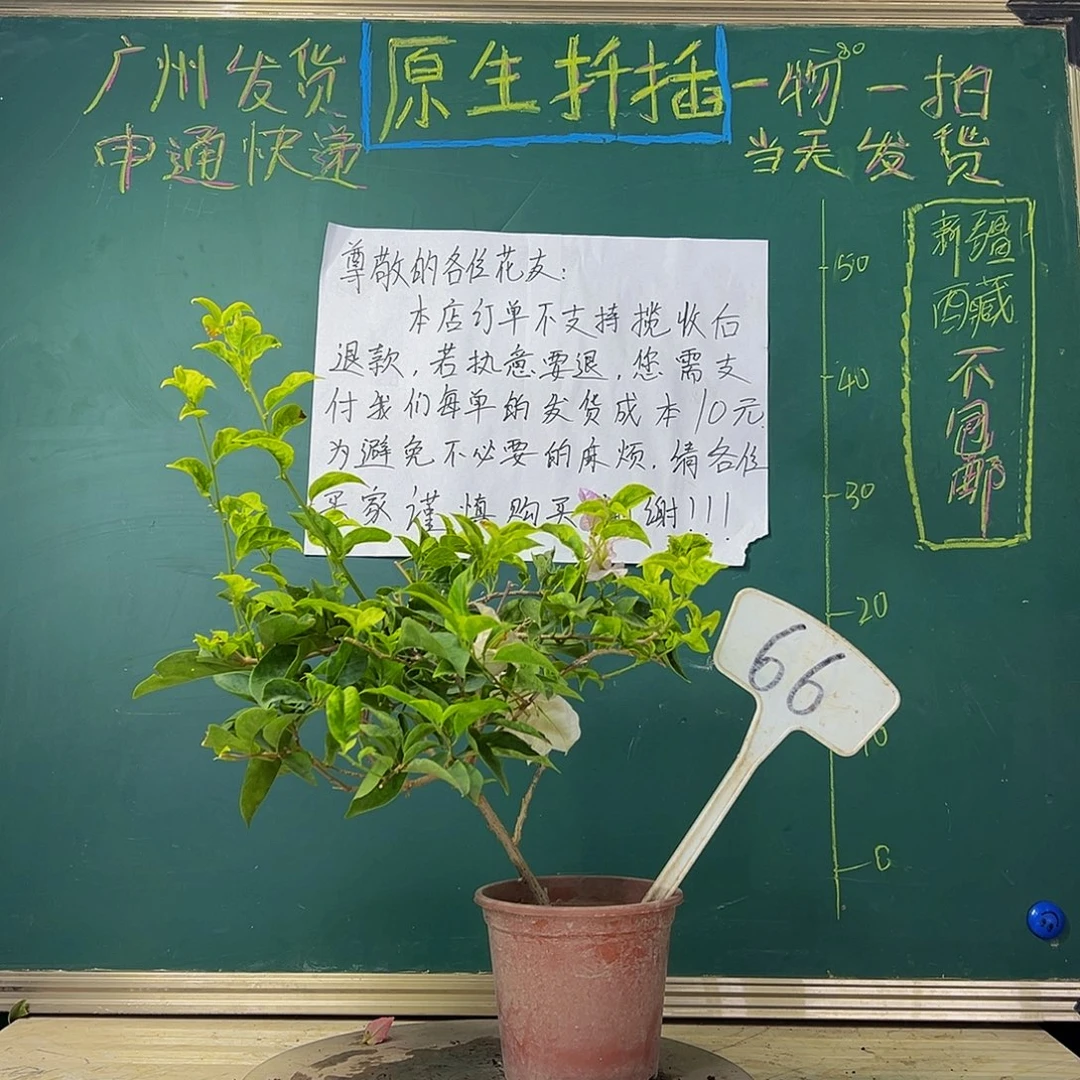 广州发货
申通快递
原生扦插
一物一拍
当天发货
新疆
西藏
不包邮
尊敬的各位花友：
本店订单不支持揽收后
退款，若执意要退，您需支
付我们每单的发货成本10元
为避免不必要的麻烦，请各位
买家谨慎购买 谢!!!
50
40
30
20
10
0
66